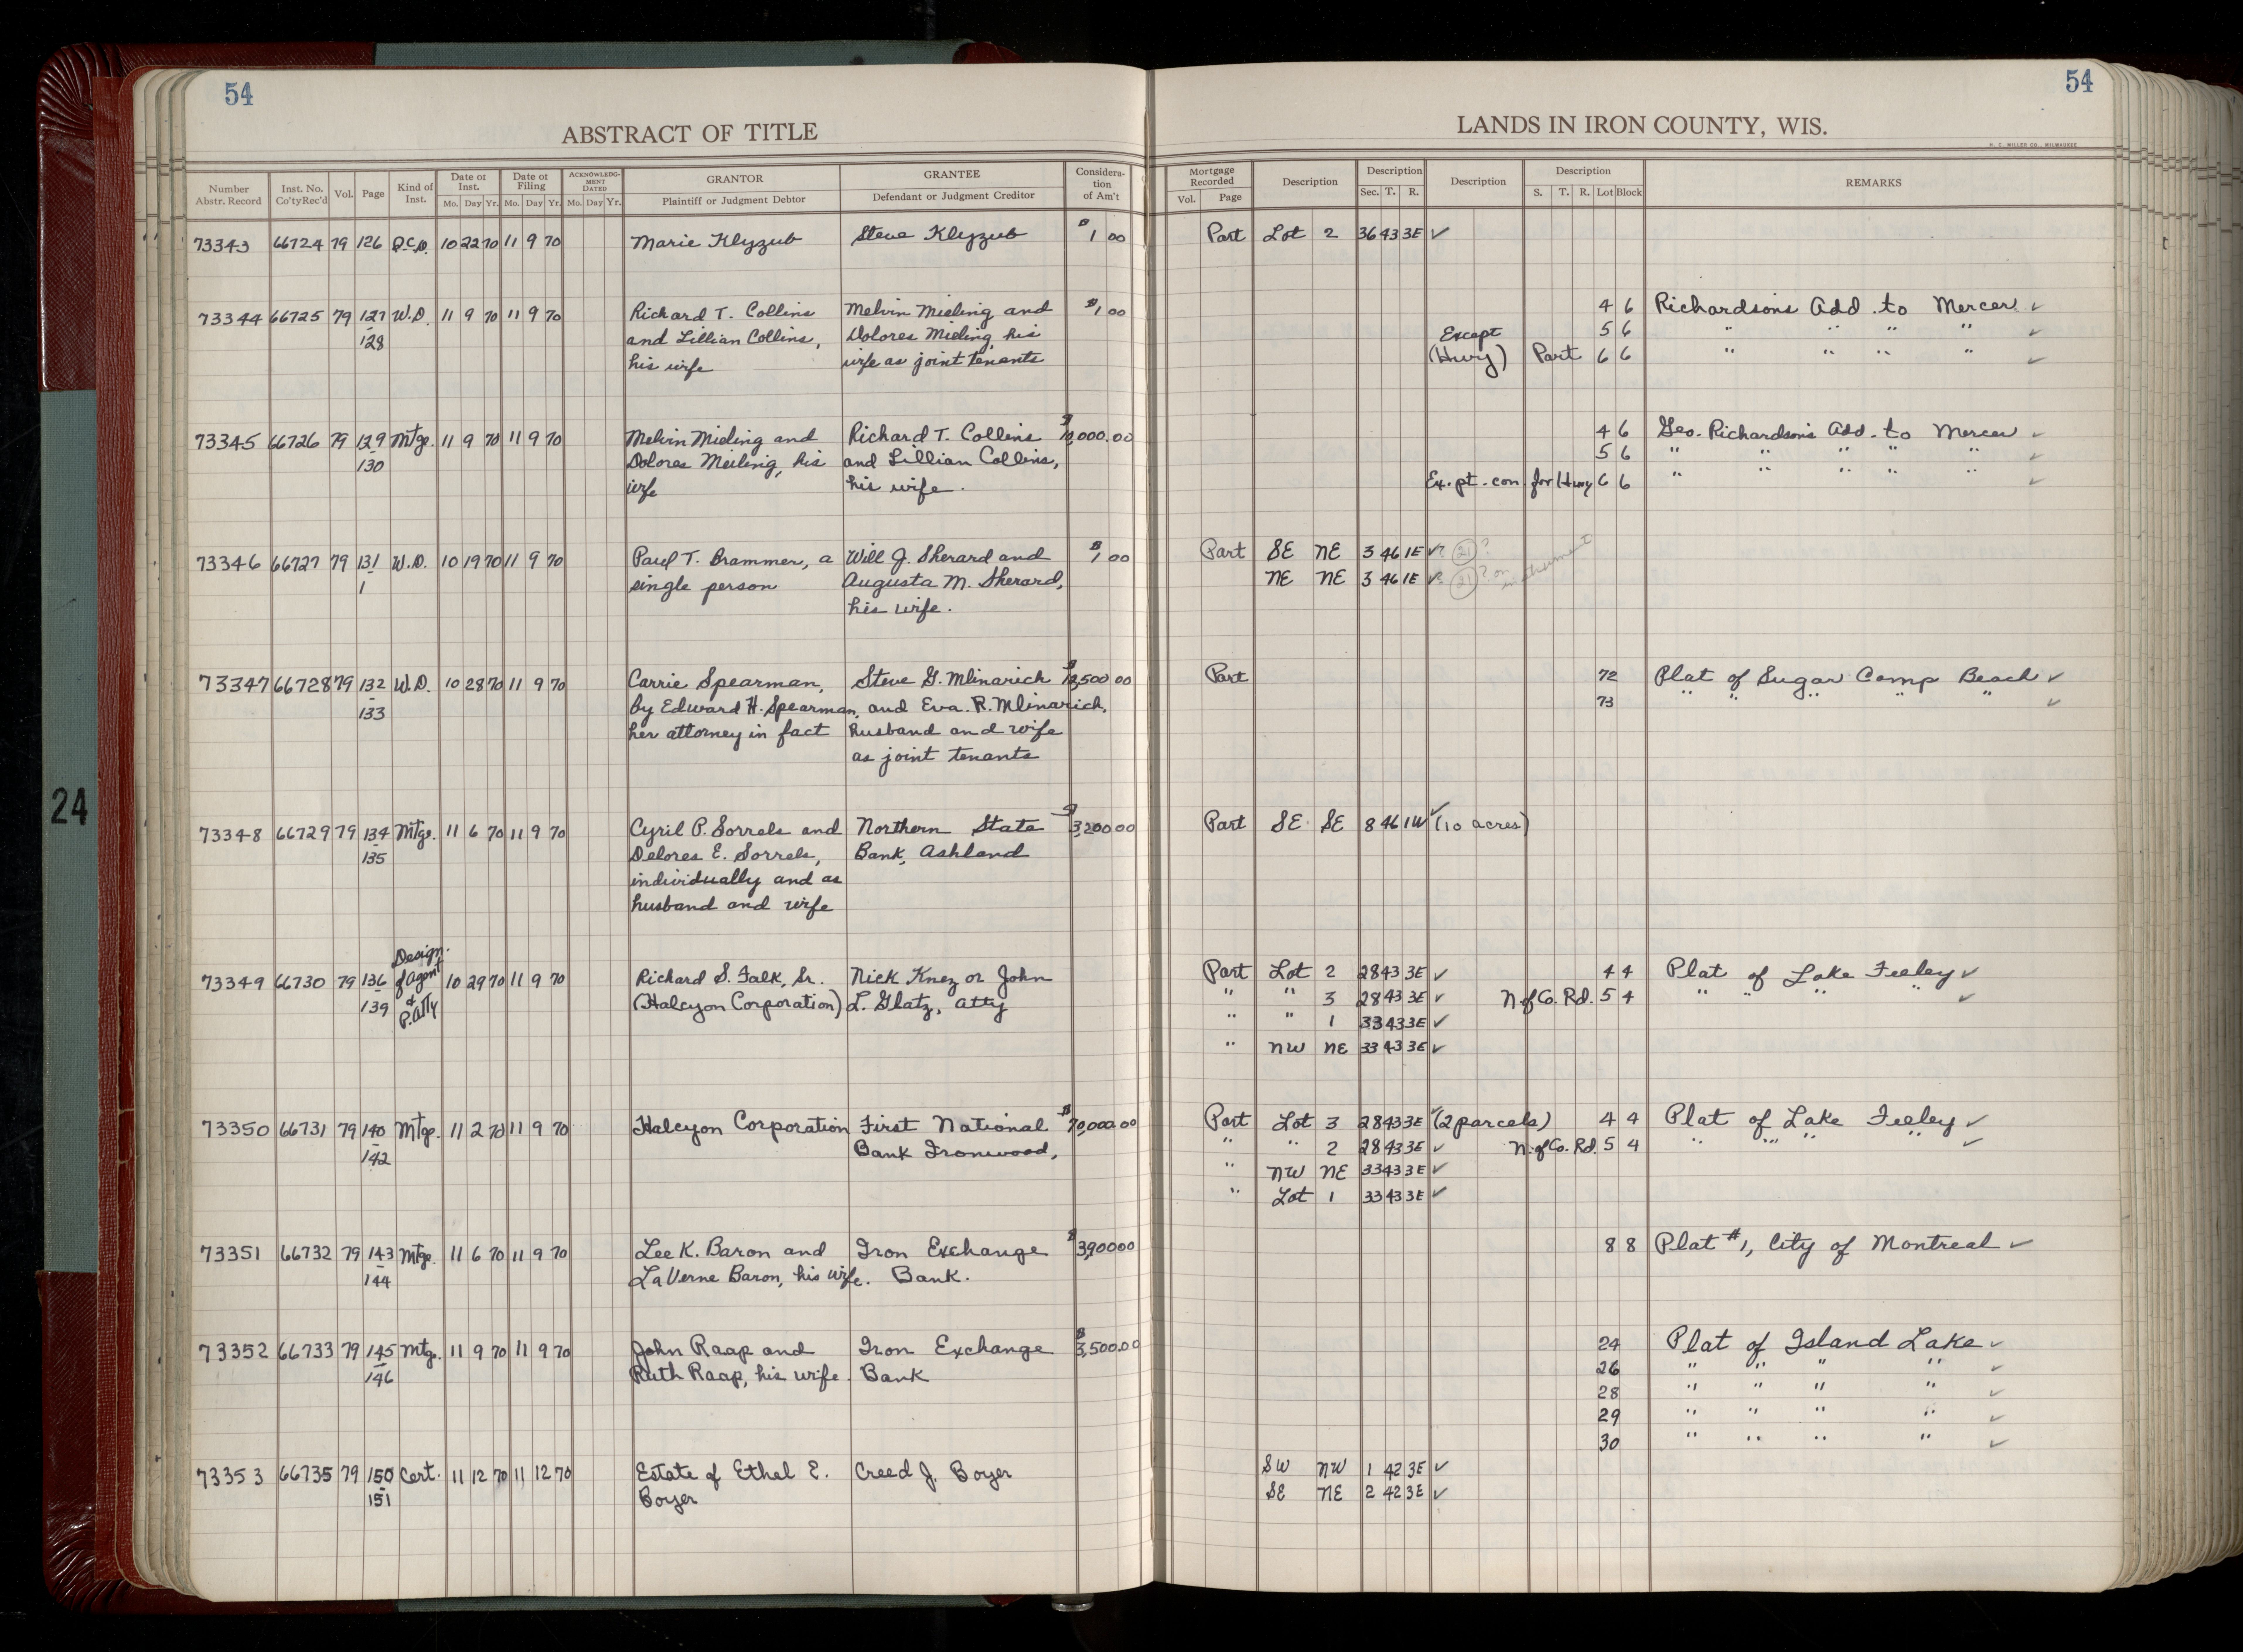 54
ABSTRACT OF TITLE
Number Abstr. Record
Inst. No. Co'ty Rec'd
Vol.
Page
Kind of Inst.
Date of Inst. Mo. Day Yr.
Date of Filing Mo. Day Yr.
ACKNOWLEDG- MENT DATED Mo. Day Yr.
GRANTOR Plaintiff or Judgment Debtor
GRANTEE Defendant or Judgment Creditor
Considera- tion of Am't
73343 66724 79 126 Q.C.D. 10 22 70 11 9 70 Marie Klyzub Steve Klyzub $1 00
73344 66725 79 127 W.D. 11 9 70 11 9 70 Richard T. Collins Melvin Mieling and $1 00
128 and Lillian Collins, Dolores Mieling, his
his wife wife as joint tenants
73345 66726 79 129 Mtge. 11 9 70 11 9 70 Melvin Mieling and Richard T. Collins $10,000.00
130 Dolores Meiling, his and Lillian Collins,
wife his wife.
73346 66727 79 131 W.D. 10 19 70 11 9 70 Paul T. Brammer, a Will J. Sherard and $1 00
1 single person Augusta M. Sherard,
his wife.
73347 66728 79 132 W.D. 10 28 70 11 9 70 Carrie Spearman, Steve G. Mlinarich $12,500 00
133 by Edward H. Spearman, and Eva. R. Mlinarich,
her attorney in fact husband and wife
as joint tenants
73348 66729 79 134 Mtge. 11 6 70 11 9 70 Cyril P. Sorrels and Northern State $3,200 00
135 Delores E. Sorrels, Bank, Ashland
individually and as
husband and wife
Design.
73349 66730 79 136 of Agent 10 29 70 11 9 70 Richard S. Falk, Sr. Nick Knez or John
139 & P. Atty (Halcyon Corporation) L. Glatz, atty
73350 66731 79 140 Mtge. 11 2 70 11 9 70 Halcyon Corporation First National $70,000.00
142 Bank Ironwood,
73351 66732 79 143 Mtge. 11 6 70 11 9 70 Lee K. Baron and Iron Exchange $3,900 00
144 LaVerne Baron, his wife. Bank.
73352 66733 79 145 Mtge. 11 9 70 11 9 70 John Raap and Iron Exchange $3,500.00
146 Ruth Raap, his wife. Bank
73353 66735 79 150 Cert. 11 12 70 11 12 70 Estate of Ethel E. Creed J. Boyer
151 Boyer
24
54
LANDS IN IRON COUNTY, WIS.
H. C. MILLER CO., MILWAUKEE
Mortgage Recorded Vol. Page
Description
Description Sec. T. R.
Description
Description S. T. R. Lot Block
REMARKS
Part Lot 2 36 43 3E ✓
4 6 Richardson's Add. to Mercer ✓
5 6 " " " " ✓
Except
(Hwy) Part 6 6 " " " " ✓
4 6 Geo. Richardson's Add. to Mercer ✓
5 6 " " " " " ✓
Ex. pt. con for Hwy 6 6 " " " " " ✓
Part SE NE 3 46 1E ✓? (21) ?
NE NE 3 46 1E ✓? (21) ? on instrument
Part 72 Plat of Sugar Camp Beach ✓
73 " " " " " ✓
Part SE SE 8 46 1W ✓ (10 acres)
Part Lot 2 28 43 3E ✓ 4 4 Plat of Lake Feeley ✓
" " 3 28 43 3E ✓ N of Co. Rd. 5 4 " " " " ✓
" " 1 33 43 3E ✓
" NW NE 33 43 3E ✓
Part Lot 3 28 43 3E ✓ (2 parcels) 4 4 Plat of Lake Feeley ✓
" " 2 28 43 3E ✓ N. of Co. Rd. 5 4 " " " " ✓
" NW NE 33 43 3E ✓
" Lot 1 33 43 3E ✓
8 8 Plat #1, City of Montreal ✓
24 Plat of Island Lake ✓
26 " " " " ✓
28 " " " " ✓
29 " " " " ✓
30 " " " " ✓
SW NW 1 42 3E ✓
SE NE 2 42 3E ✓